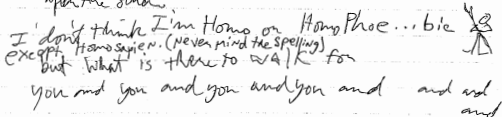 I don't think I'm Homo or HomoPhoe...bic
except Homosapien. (Never mind the spelling)
but what is there to WAIK for
you and you and you and you and and and
and